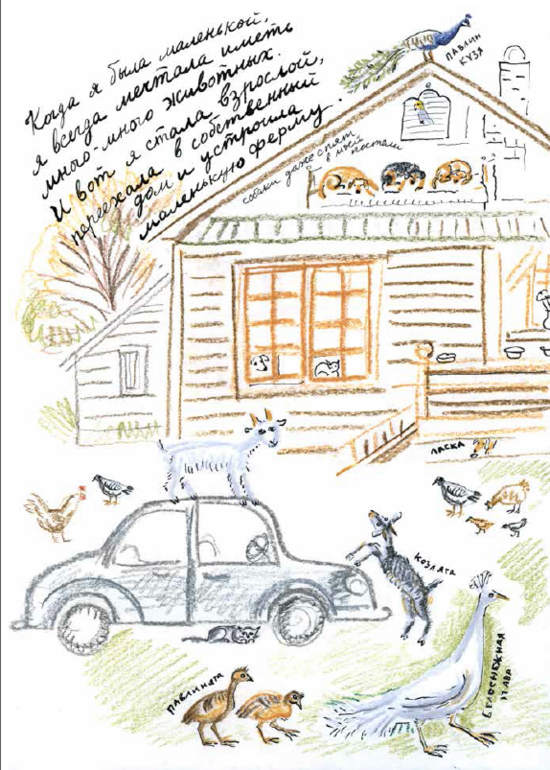 Когда я была маленькой,
я всегда мечтала иметь
много-много животных.
И вот я стала взрослой,
переехала в собственный
дом и устроила
маленькую ферму.
ПАВЛИН
КУЗЯ
собаки даже спят
в моей
постели
ЛАСКА
КОЗЛЯТА
ПАВЛИНЯТА
БЕЛОСНЕЖНАЯ
ПАВА